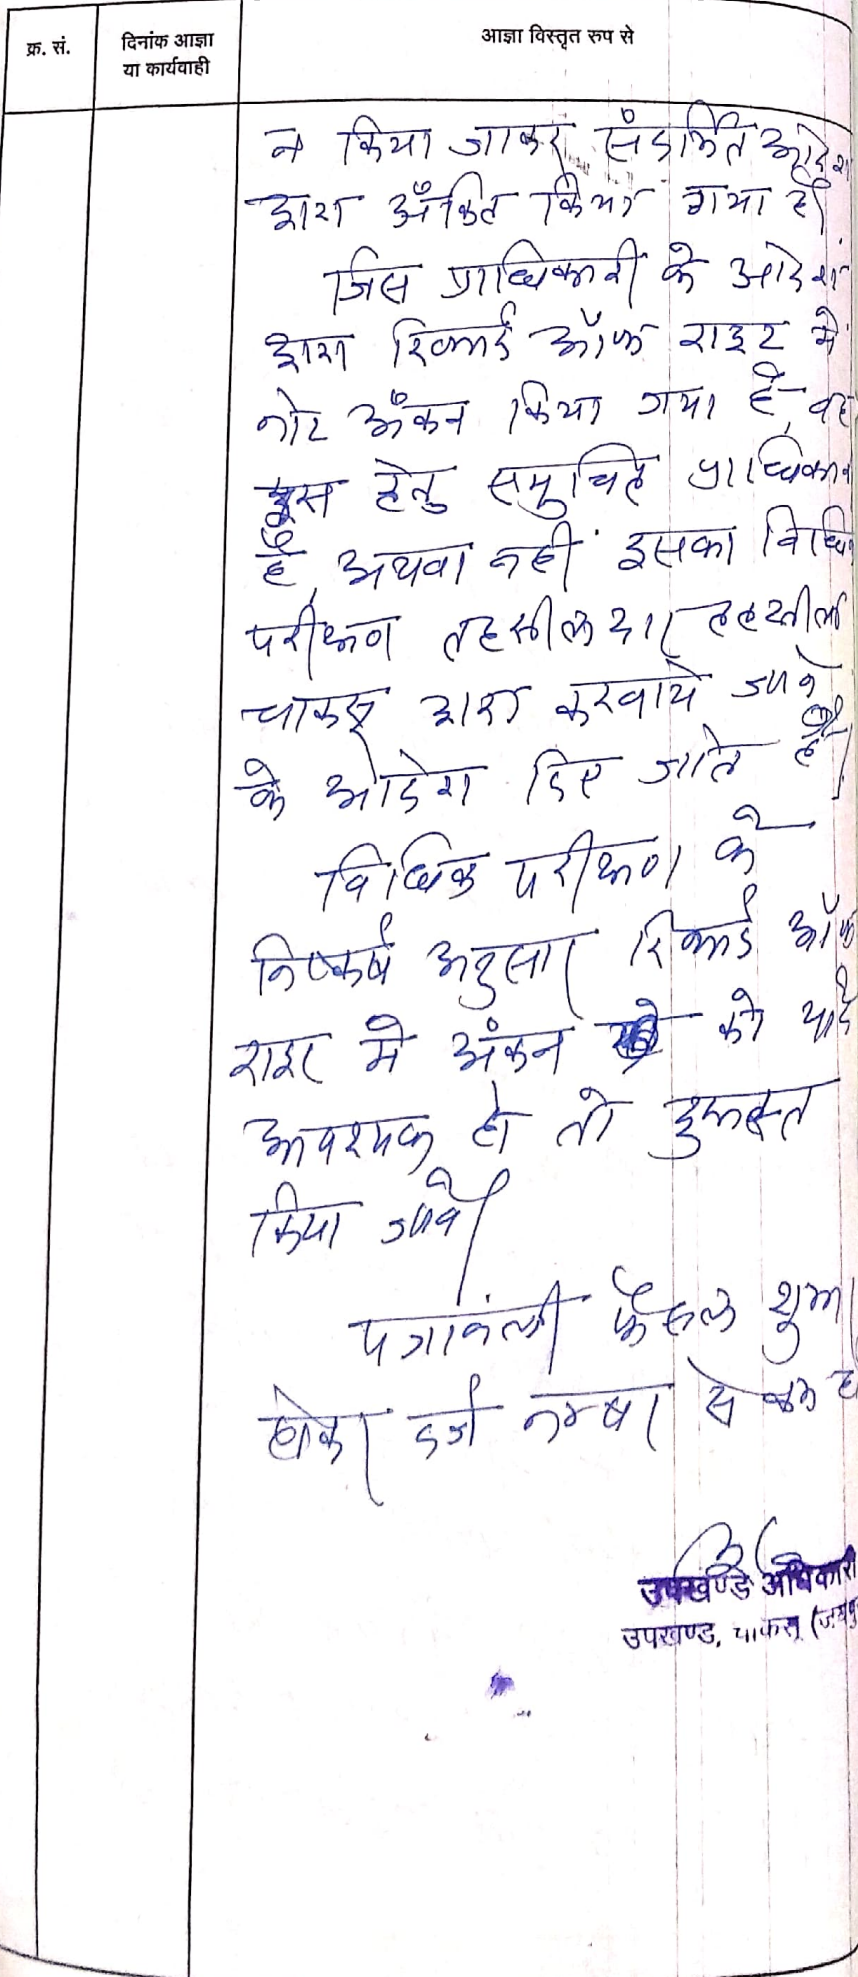 क्र. सं.
दिनांक आज्ञा
या कार्यवाही
आज्ञा विस्तृत रुप से
न किया जाकर संदर्भित आदेश
द्वारा अँकित किया गया है।
जिस प्राधिकारी के आदेश
द्वारा रिकार्ड ऑफ राइट में
नोट अँकन किया गया है, वह
इस हेतु समुचित प्राधिकारी
है, अथवा नहीं इसका विधिक
परीक्षण तहसीलदार तहसील
चाकसू द्वारा करवाये जाने
के आदेश दिए जाते है।
विधिक परीक्षण के
निष्कर्ष अनुसार रिकार्ड ऑफ
राइट में अंकन को यदि
आवश्यक हो तो दुरूस्त
किया जावे।
पत्रावली फैसल शुमार
होकर दर्ज नम्बर से कम हो
उपखण्ड अधिकारी
उपखण्ड, चाकसू (जयपु